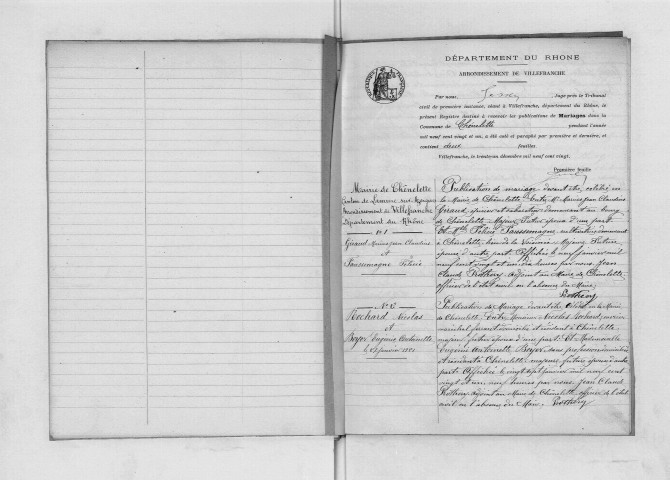 DÉPARTEMENT DU RHONE
ARRONDISSEMENT DE VILLEFRANCHE
Par nous, Juge près le Tribunal
civil de première instance, séant à Villefranche, département du Rhône, le
présent Registre destiné à recevoir les publications de Mariages dans la
Commune de Chénelette pendant l'année
mil neuf cent vingt et un, a été coté et paraphé par première et dernière, et
contient deux feuilles
Villefranche, le trente un décembre mil neuf cent vingt.
Première feuille
Mairie de Chénelette
Canton de Lamure sur Azergues
Arrondissement de Villefranche
Département du Rhône
N° 1
Giraud Marius Jean Claudius
et
Sanssemagne Félicie
Publication de mariage devant être célébré en
la Mairie de Chénelette. Entre Mr Marius Jean Claudius
Giraud, épicier et demeurant au bourg
de Chénelette Majeur Futur époux d'une part
Et Mlle Félicie cultivatrice demeurant
à Chénelette, Majeure Future
épouse d'autre part. Affichée le neuf janvier mil
neuf cent vingt et un, dix heures par nous, Jean
Claude Rothery Adjoint au Maire de Chénelette
officier de l'état civil en l'absence du Maire,
Rothery
N° 2
Rochard Nicolas
et
Boyer Eugénie Antoinette
le 27 janvier 1921
Publication de Mariage devant être célébré en la Mairie
de Chénelette. Entre Monsieur Nicolas Rochard, ouvrier
maréchal ferrant domicilié et résidant à Chénelette,
majeur futur époux d'une part. Et Mademoiselle
Eugénie Antoinette Boyer sans profession domiciliée
et résidant à Chénelette, majeure future épouse d'autre
part. Affichée le vingt sept janvier mil neuf cent
vingt et un, neuf heures par nous, Jean Claude
Rothery adjoint au Maire de Chénelette, officier de l'état
civil en l'absence du Maire. Rothery